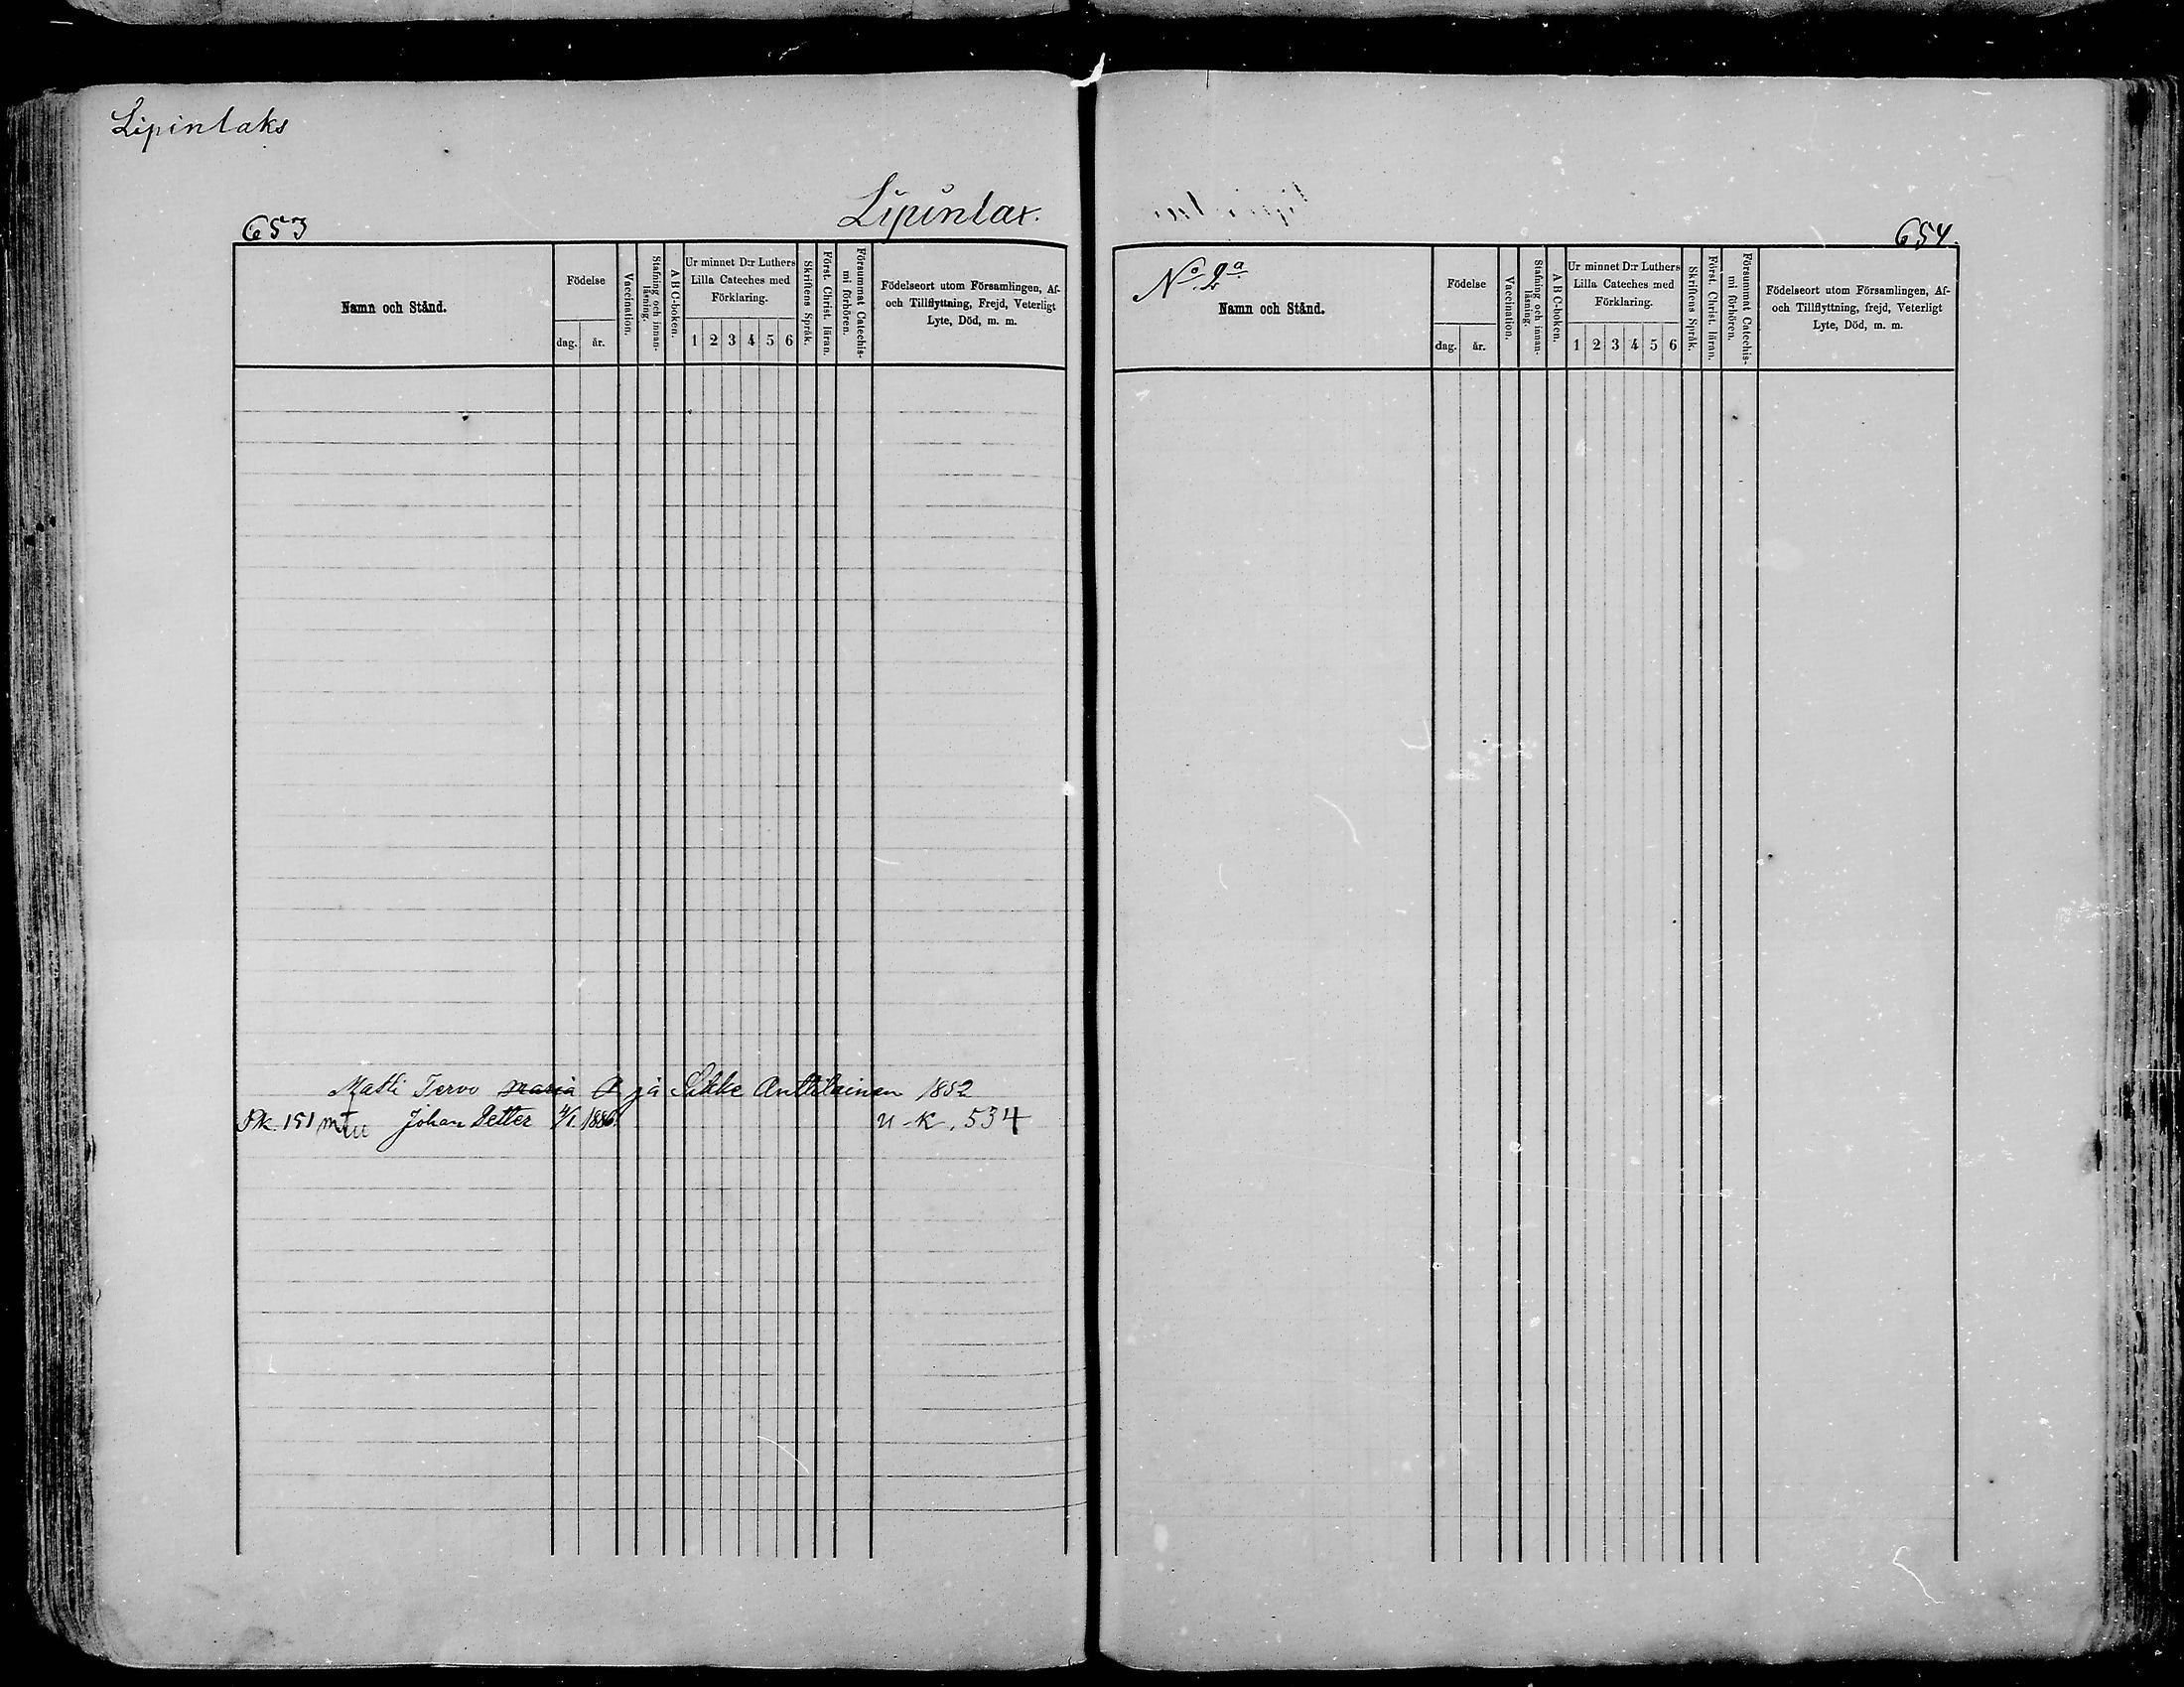 Lipinlaks
Lipinlax.
653
Namn och Stånd.
Födelse
dag.
år.
Vaccination.
Stafning och innan-
läsning.
A B C-boken.
Ur minnet D:r Luthers
Lilla Cateches med
Förklaring.
1 2 3 4 5 6
Skriftens Språk.
Först. Christ. läran.
Försummat Catechis-
mi förhören.
Födelseort utom Församlingen, Af-
och Tillflyttning, Frejd, Veterligt
Lyte, Död, m. m.
Matti Tervo maria A ja Sikke Anttilainen 1852
Pk. 151 Johan Petter 4/1. 1886. u-K. 534
654.
No. 2a
Namn och Stånd.
Födelse
dag.
år.
Vaccination.
Stafning och innan-
läsning.
A B C-boken.
Ur minnet D:r Luthers
Lilla Cateches med
Förklaring.
1 2 3 4 5 6
Skriftens Språk.
Först. Christ. läran.
Försummat Catechis-
mi förhören.
Födelseort utom Församlingen, Af-
och Tillflyttning, frejd, Veterligt
Lyte, Död, m. m.